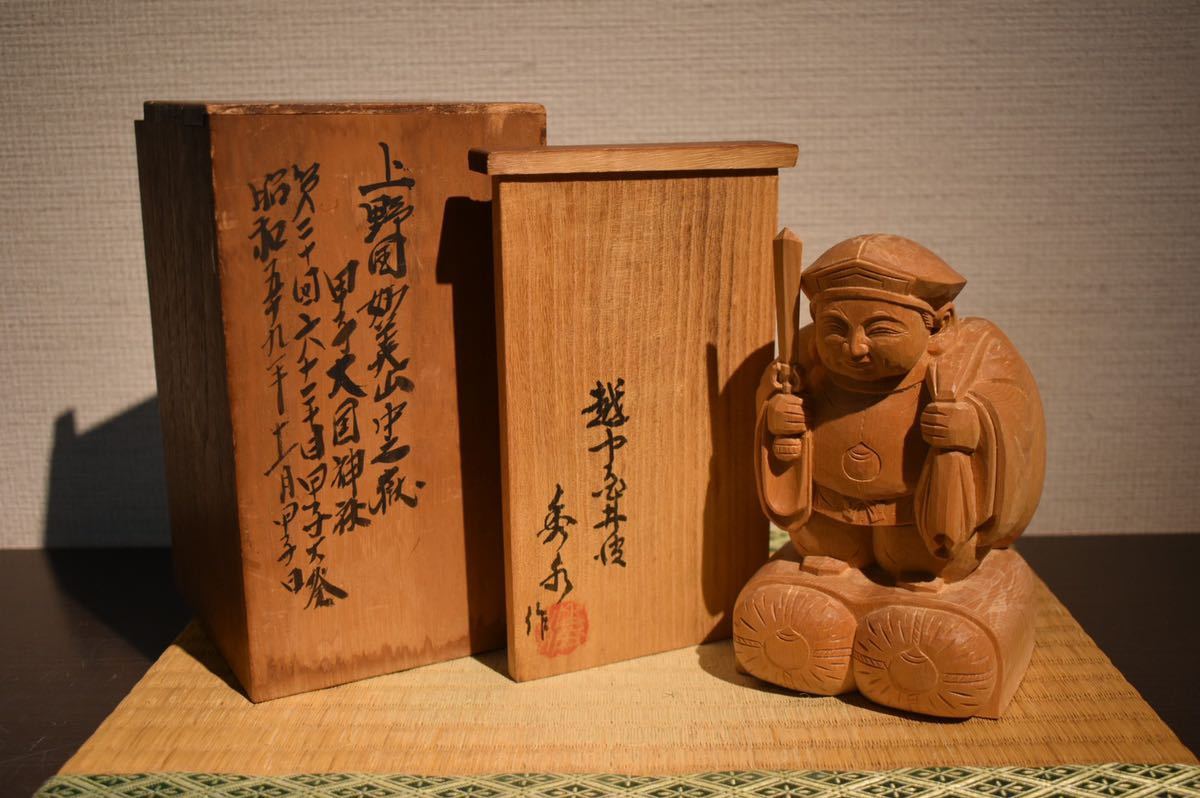 上野国妙義山中之嶽
甲子大国神社
第三十回六十一年目甲子大祭
昭和五十九年十一月甲子日
越中
井波
秀
作